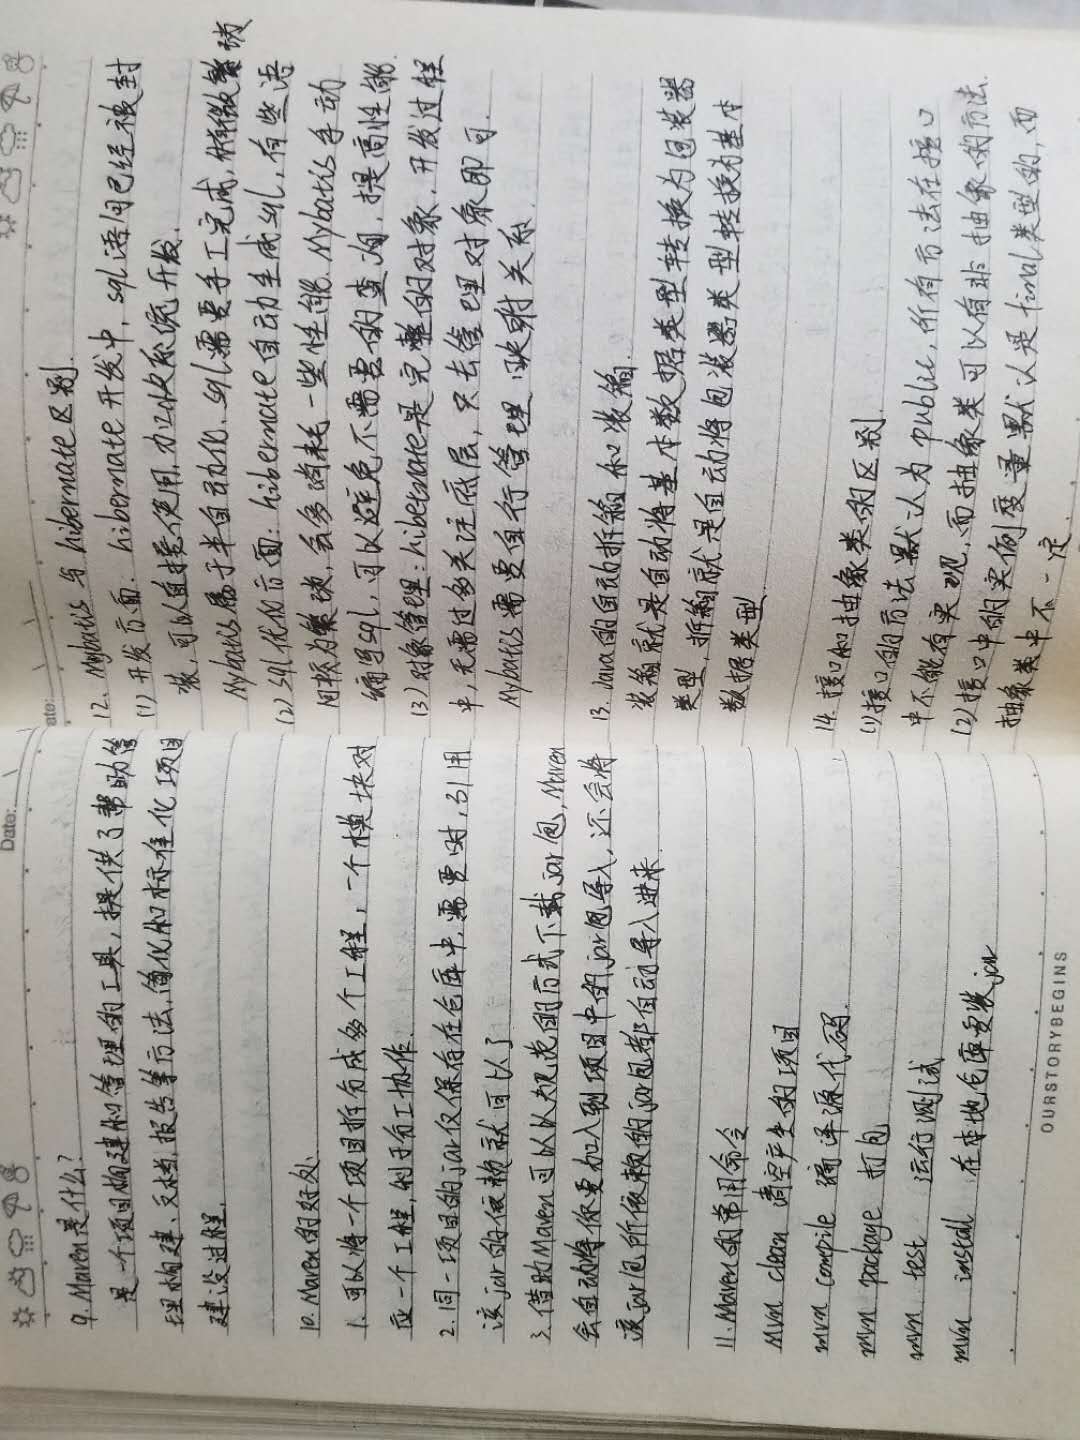 Date:
9. Maven是什么?
是一个项目构建和管理的工具,提供了帮助管
理构建、文档,报告等方法,简化和标准化项目
建设过程.
10. Maven的好处.
1. 可以将一个项目拆分成多个工程,一个模块对
应一个工程,利于分工协作.
2. 同一项目的jar仅保存在仓库中,需要时,引用
该jar的依赖就可以了
3. 借助Maven可以以规范的方式下载jar包,Maven
会自动将你要加入到项目中的jar包导入,还会将
该jar包所依赖的jar包都自动导入进来.
11. Maven的常用命令
mvn clean 清空产生的项目
mvn compile 编译源代码.
mvn package 打包
mvn test 运行测试
mvn install 在本地仓库安装jar
OURSTORYBEGINS
ate:
12. Mybatis与hibernate区别.
(1) 开发方面: hibernate开发中, sql语句已经被封
装,可以直接使用,加快系统开发.
Mybatis属于半自动化, sql需要手工完成,稍微繁琐
(2) sql优化方面: hibernate自动生成sql,有些语
句较为繁琐,会多消耗一些性能. Mybatis手动
编写sql,可以避免不需要的查询,提高性能.
(3) 对象管理: hibetnate是完整的对象,开发过程
中,无需过多关注底层,只去管理对象即可.
Mybatis需要自行管理映射关系.
13. Java的自动拆箱和装箱.
装箱就是自动将基本数据类型转换为包装器
类型,拆箱就是自动将包装器类型转换为基本
数据类型
14. 接口和抽象类的区别.
(1) 接口的方法默认为public,所有方法在接口
中不能有实现,而抽象类可以有非抽象的方法.
(2) 接口中的实例变量默认是final类型的,而
抽象类中不一定.